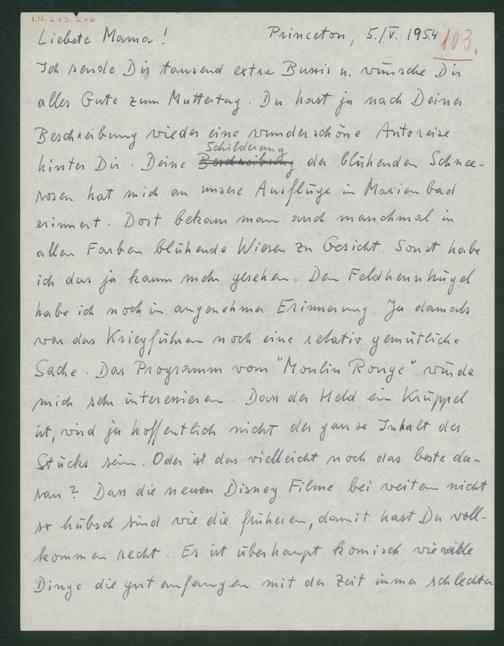 I.N. 213.216
Liebste Mama! Princeton, 5./V. 1954 103.
Ich sende Dir tausend extra Bussis u. wünsche Dir
alles Gute zum Muttertag. Du hast ja nach Deiner
Beschreibung wieder eine wunderschöne Autoreise
Schilderung
hinter Dir. Deine Beschreibung der blühenden Schnee-
rosen hat mich an unsere Ausflüge in Marienbad
erinnert. Dort bekam man auch manchmal in
allen Farben blühende Wiesen zu Gesicht. Sonst habe
ich das ja kaum mehr gesehen. Den Feldherrnhügel
habe ich noch in angenehmer Erinnerung. Ja damals
war das Kriegführen noch eine relativ gemütliche
Sache. Das Programm vom "Moulin Rouge" würde
mich sehr interessieren. Dass der Held ein Krüppel
ist, wird ja hoffentlich nicht der ganze Inhalt des
Stücks sein. Oder ist das vielleicht noch das beste da-
ran? Dass die neuen Disney Filme bei weitem nicht
so hübsch sind wie die früheren, damit hast Du voll-
kommen recht. Es ist überhaupt komisch wieviele
Dinge die gut anfangen mit der Zeit immer schlechter